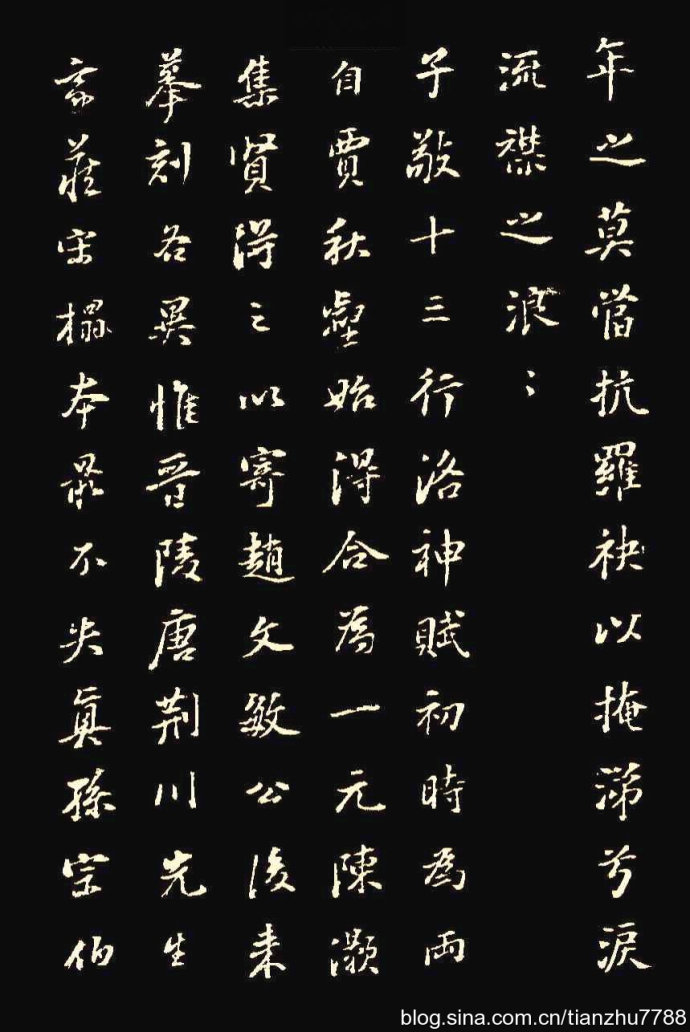 年之莫當抗羅袂以掩涕兮淚
流襟之浪〻
子敬十三行洛神賦初時為兩
自賈秋壑始得合為一元陳灝
集賢得之以寄趙文敏公後來
摹刻各異惟晉陵唐荆川先生
齋藏宋榻本最不失真孫宗伯
blog.sina.com.cn/tianzhu7788